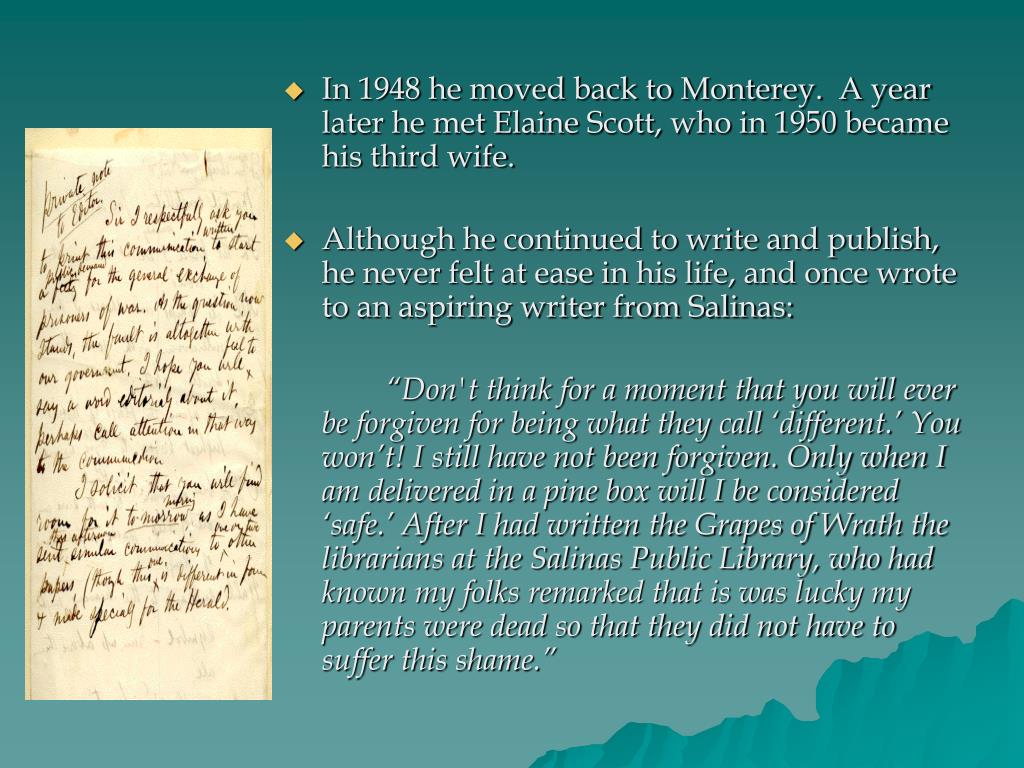 private note
to Editor.
Sir I respectfully ask you
to print this communication written to start
a public demand for the general exchange of
prisoners of war. As the question now
stands, the fault is altogether with
our government. I hope you will feel to
say a word editorialy about it,
perhaps call attention in that way
to the communication
I solicit that you will find
room for it to morrow morning, as I have
sent this afternoon similar communications to one or two other
papers, (though this one, is different in form
& made specialy for the Herald.
◆ In 1948 he moved back to Monterey.  A year
later he met Elaine Scott, who in 1950 became
his third wife.
◆ Although he continued to write and publish,
he never felt at ease in his life, and once wrote
to an aspiring writer from Salinas:
“Don't think for a moment that you will ever
be forgiven for being what they call ‘different.’ You
won’t! I still have not been forgiven. Only when I
am delivered in a pine box will I be considered
‘safe.’ After I had written the Grapes of Wrath the
librarians at the Salinas Public Library, who had
known my folks remarked that is was lucky my
parents were dead so that they did not have to
suffer this shame.”